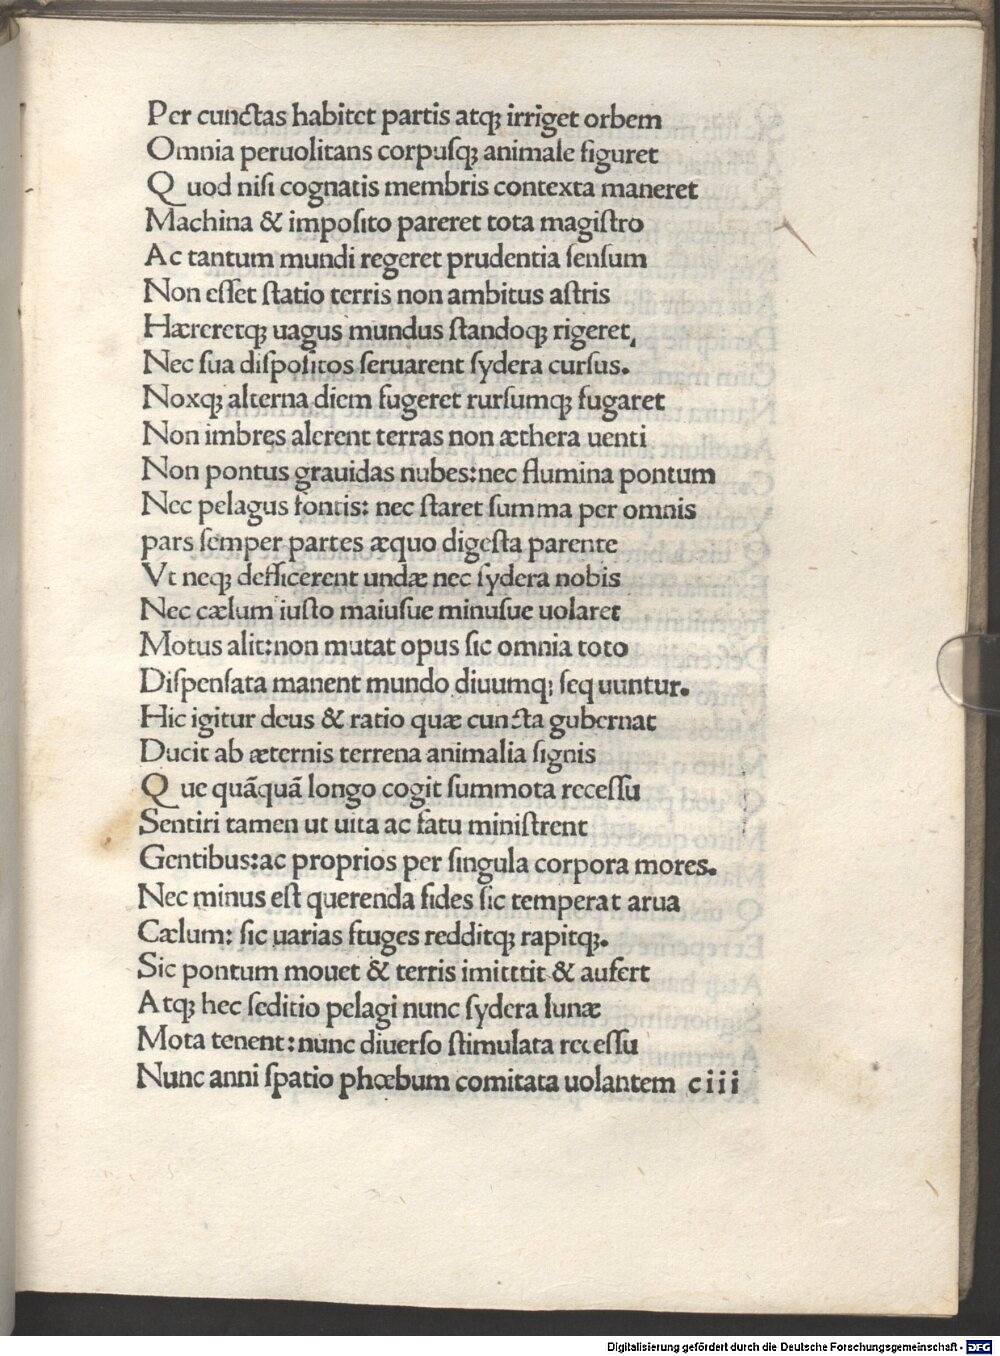 Per cunctas habitet partis atqꝫ irriget orbem
Omnia peruolitans corpuſqꝫ animale figuret
Q uod niſi cognatis membris contexta maneret
Machina & impoſito pareret tota magiſtro
Ac tantum mundi regeret prudentia ſenſum
Non eſſet ſtatio terris non ambitus aſtris
Hæreretqꝫ uagus mundus ſtandoqꝫ rigeret,
Nec ſua diſpoſitos ſeruarent ſydera curſus.
Noxqꝫ alterna diem fugeret rurſumqꝫ fugaret
Non imbres alerent terras non æthera uenti
Non pontus grauidas nubes:nec flumina pontum
Nec pelagus fontis: nec ſtaret ſumma per omnis
pars ſemper partes æquo digeſta parente
Vt neqꝫ defficerent undæ nec ſydera nobis
Nec cælum iuſto maiuſue minuſue uolaret
Motus alit:non mutat opus ſic omnia toto
Diſpenſata manent mundo diuumqꝫ ſeq uuntur.
Hic igitur deus & ratio quæ cuncta gubernat
Ducit ab æternis terrena animalia ſignis
Q ue quãquã longo cogit ſummota receſſu
Sentiri tamen ut uita ac fatu miniſtrent
Gentibus:ac proprios per ſingula corpora mores.
Nec minus eſt querenda fides ſic temperat arua
Cælum: ſic uarias ftuges redditqꝫ rapitqꝫ.
Sic pontum mouet & terris imitttit & aufert
Atqꝫ hec ſeditio pelagi nunc ſydera lunæ
Mota tenent:nunc diuerſo ſtimulata receſſu
Nunc anni ſpatio phœbum comitata uolantem ciii
Digitalisierung gefördert durch die Deutsche Forschungsgemeinschaft - DFG